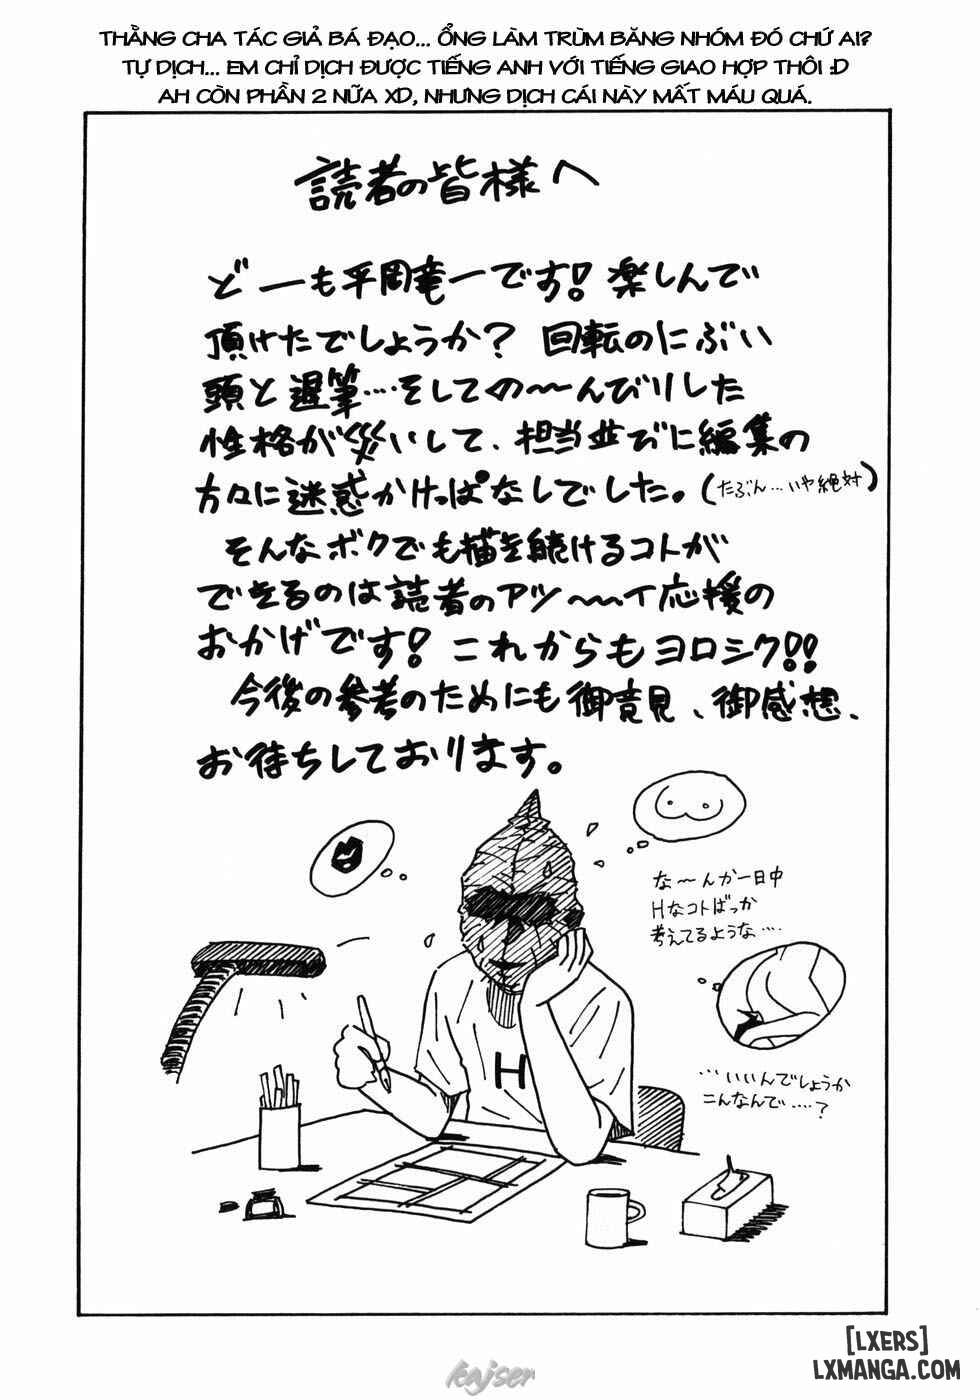 THẰNG CHA TÁC GIẢ BÁ ĐẠO... ỔNG LÀM TRÙM BĂNG NHÓM ĐÓ CHỨ AI?
TỰ DỊCH... EM CHỈ DỊCH ĐƯỢC TIẾNG ANH VỚI TIẾNG GIAO HỢP THÔI :D
AH CÒN PHẦN 2 NỮA XD, NHƯNG DỊCH CÁI NÀY MẤT MÁU QUÁ.
読者の皆様へ
どーも平岡竜一です!楽しんで
頂けたでしょうか?回転のにぶい
頭と遅筆…そしての〜んびりした
性格が災いして、担当並びに編集の
方々に迷惑かけっぱなしでした。(たぶん…いや絶対)
そんなボクでも描き続けるコトが
できるのは読者のアツ〜イ応援の
おかげです!これからもヨロシク!!
今後の参考のためにも御意見、御感想、
お待ちしております。
な〜んか一日中
Hなコトばっか
考えてるような…
H
…いいんでしょうか
こんなんで……?
kajser
[LXERS]
LXMANGA.COM